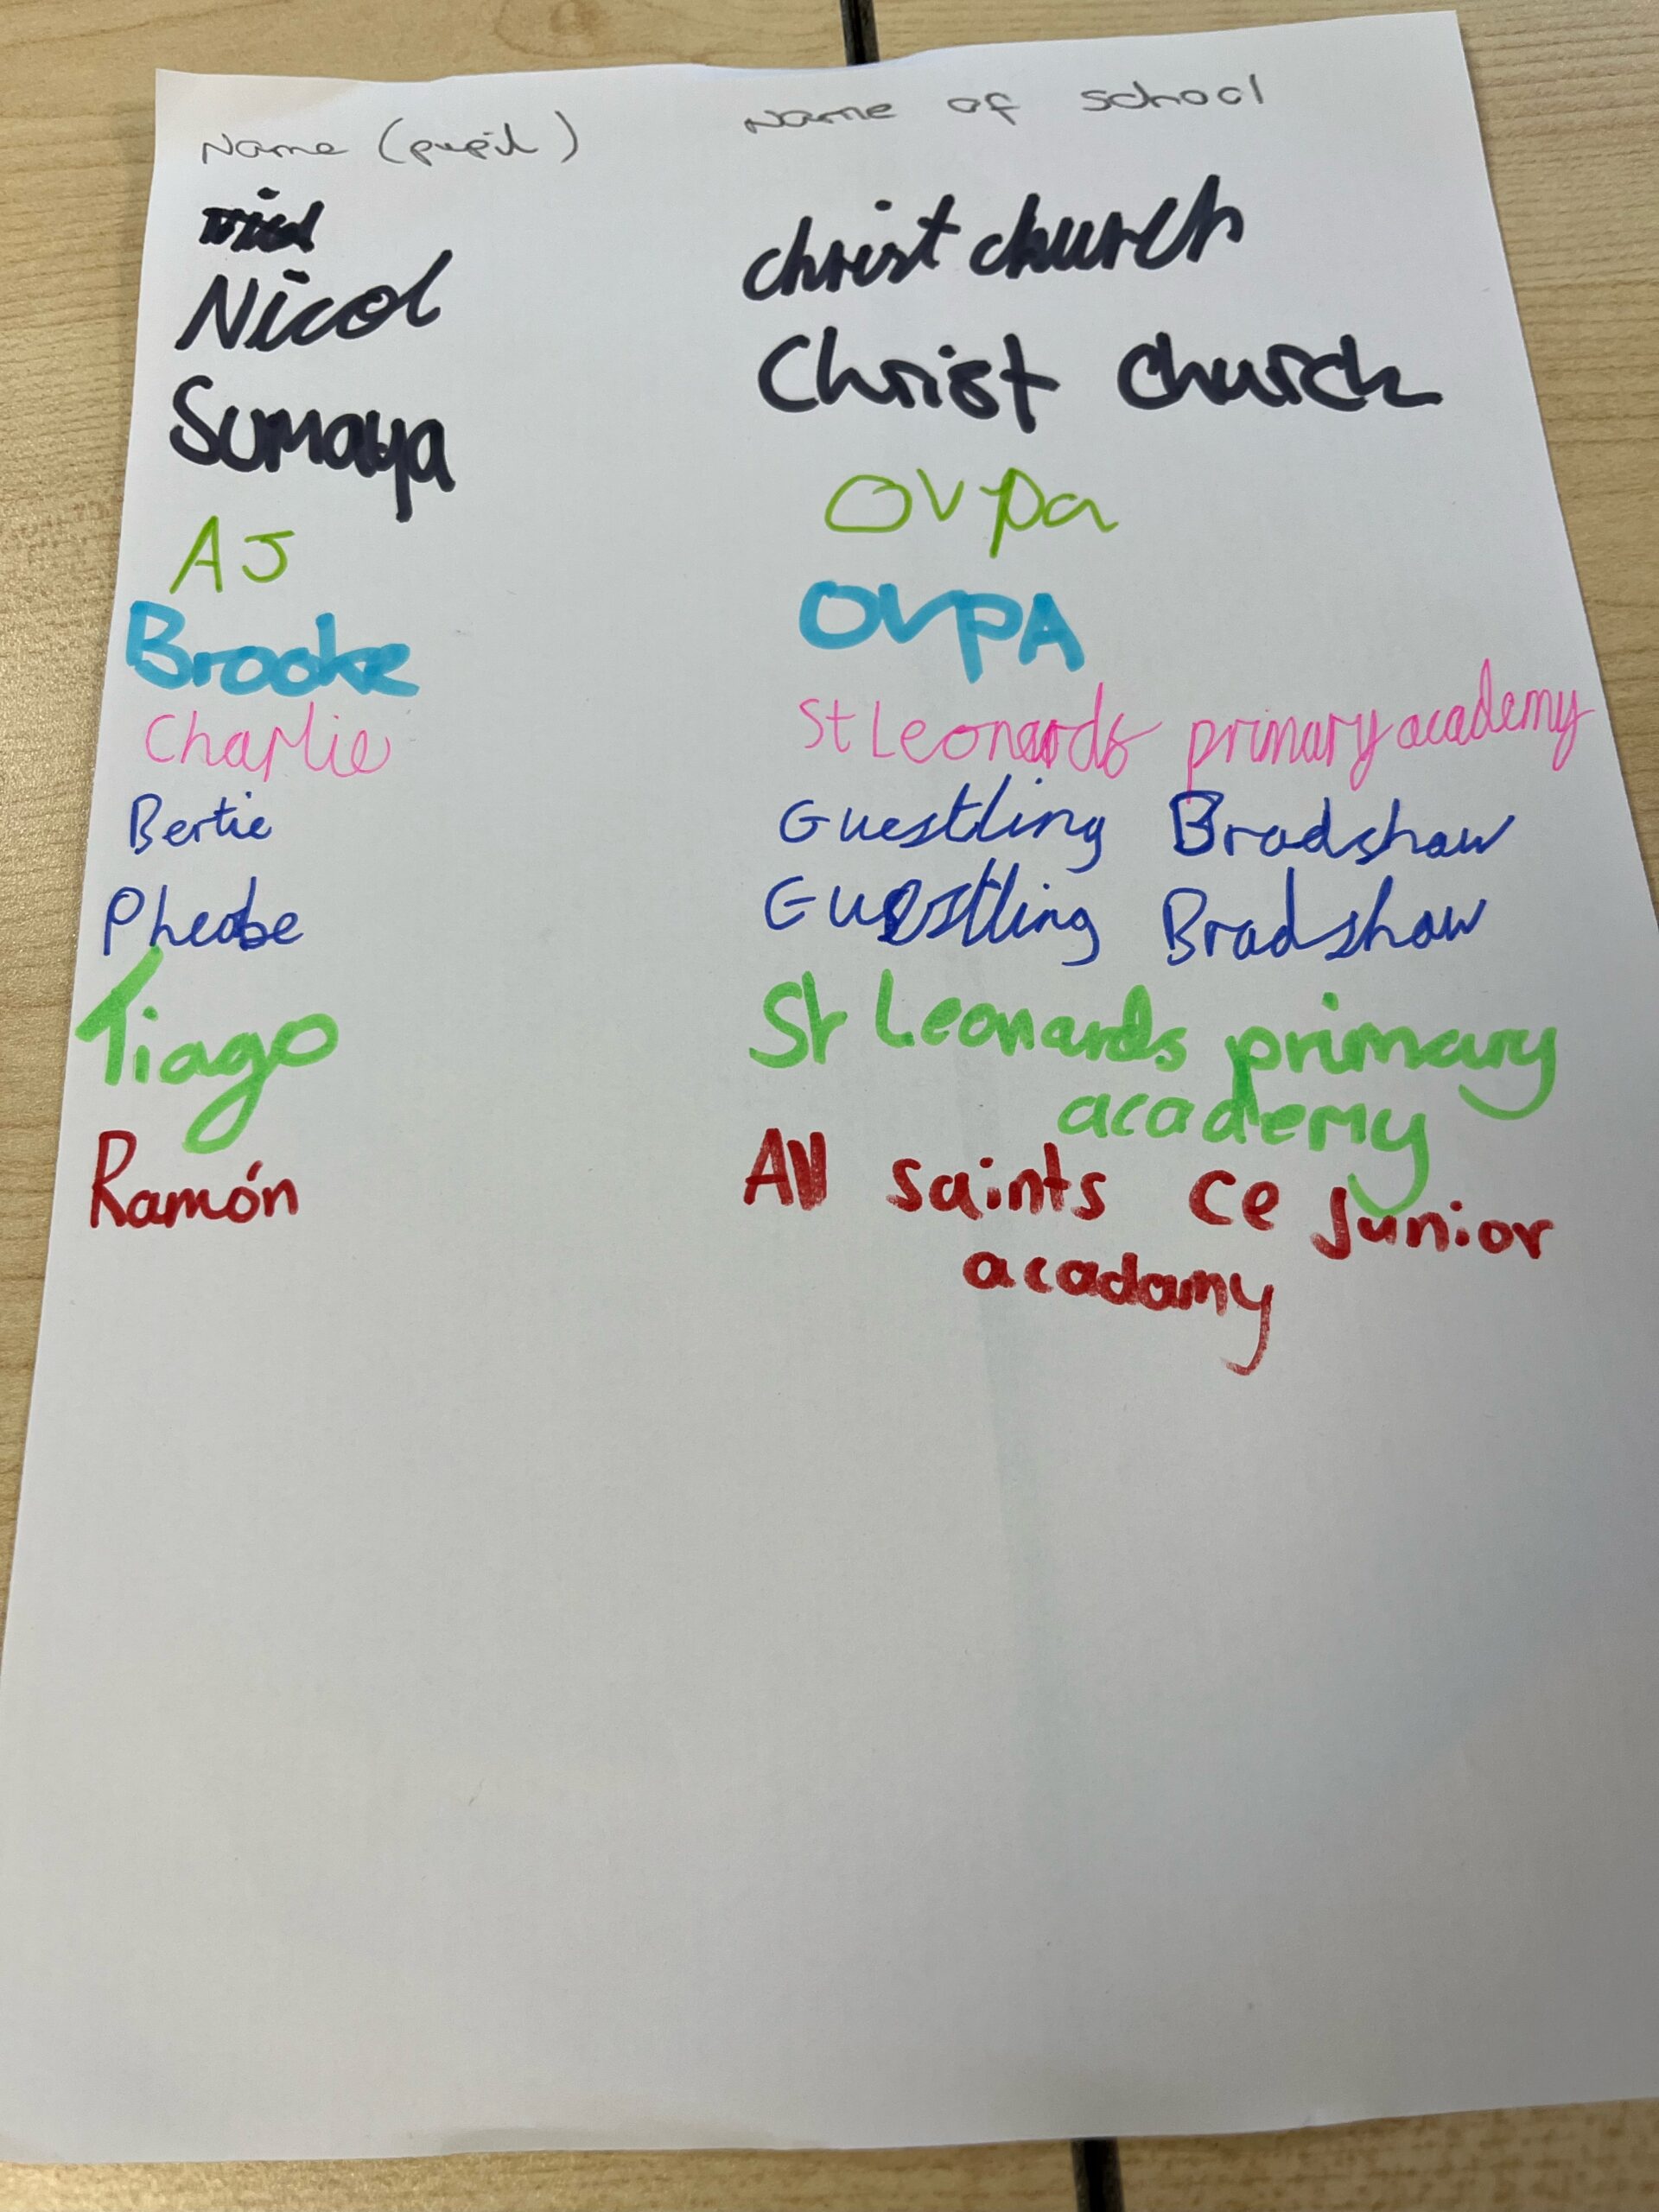 Name (pupil) Name of school
Nicol christ church
Sumaya Christ Church
AJ OVpa
Brooke OVPA
Charlie St Leonards primary academy
Bertie Guestling Bradshaw
Pheobe Guestling Bradshaw
Tiago St Leonards primary
academy
Ramón All saints ce junior
acadamy